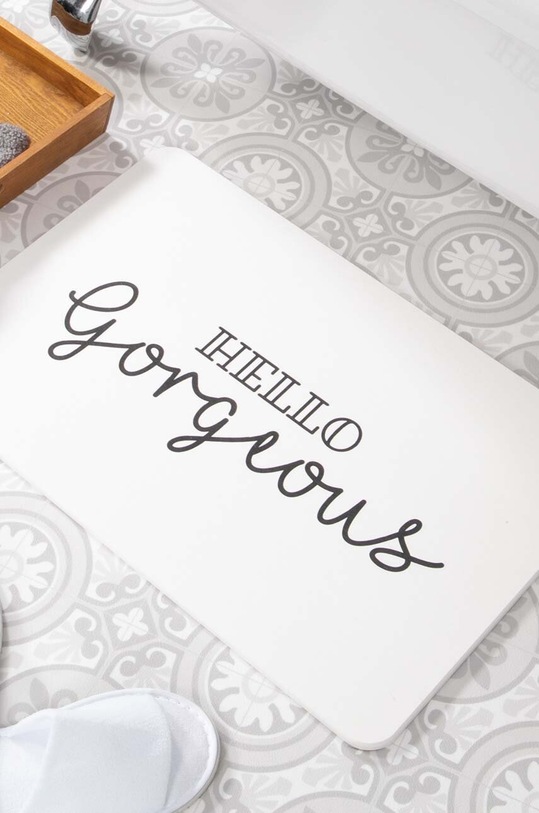 HELLO
Gorgeous